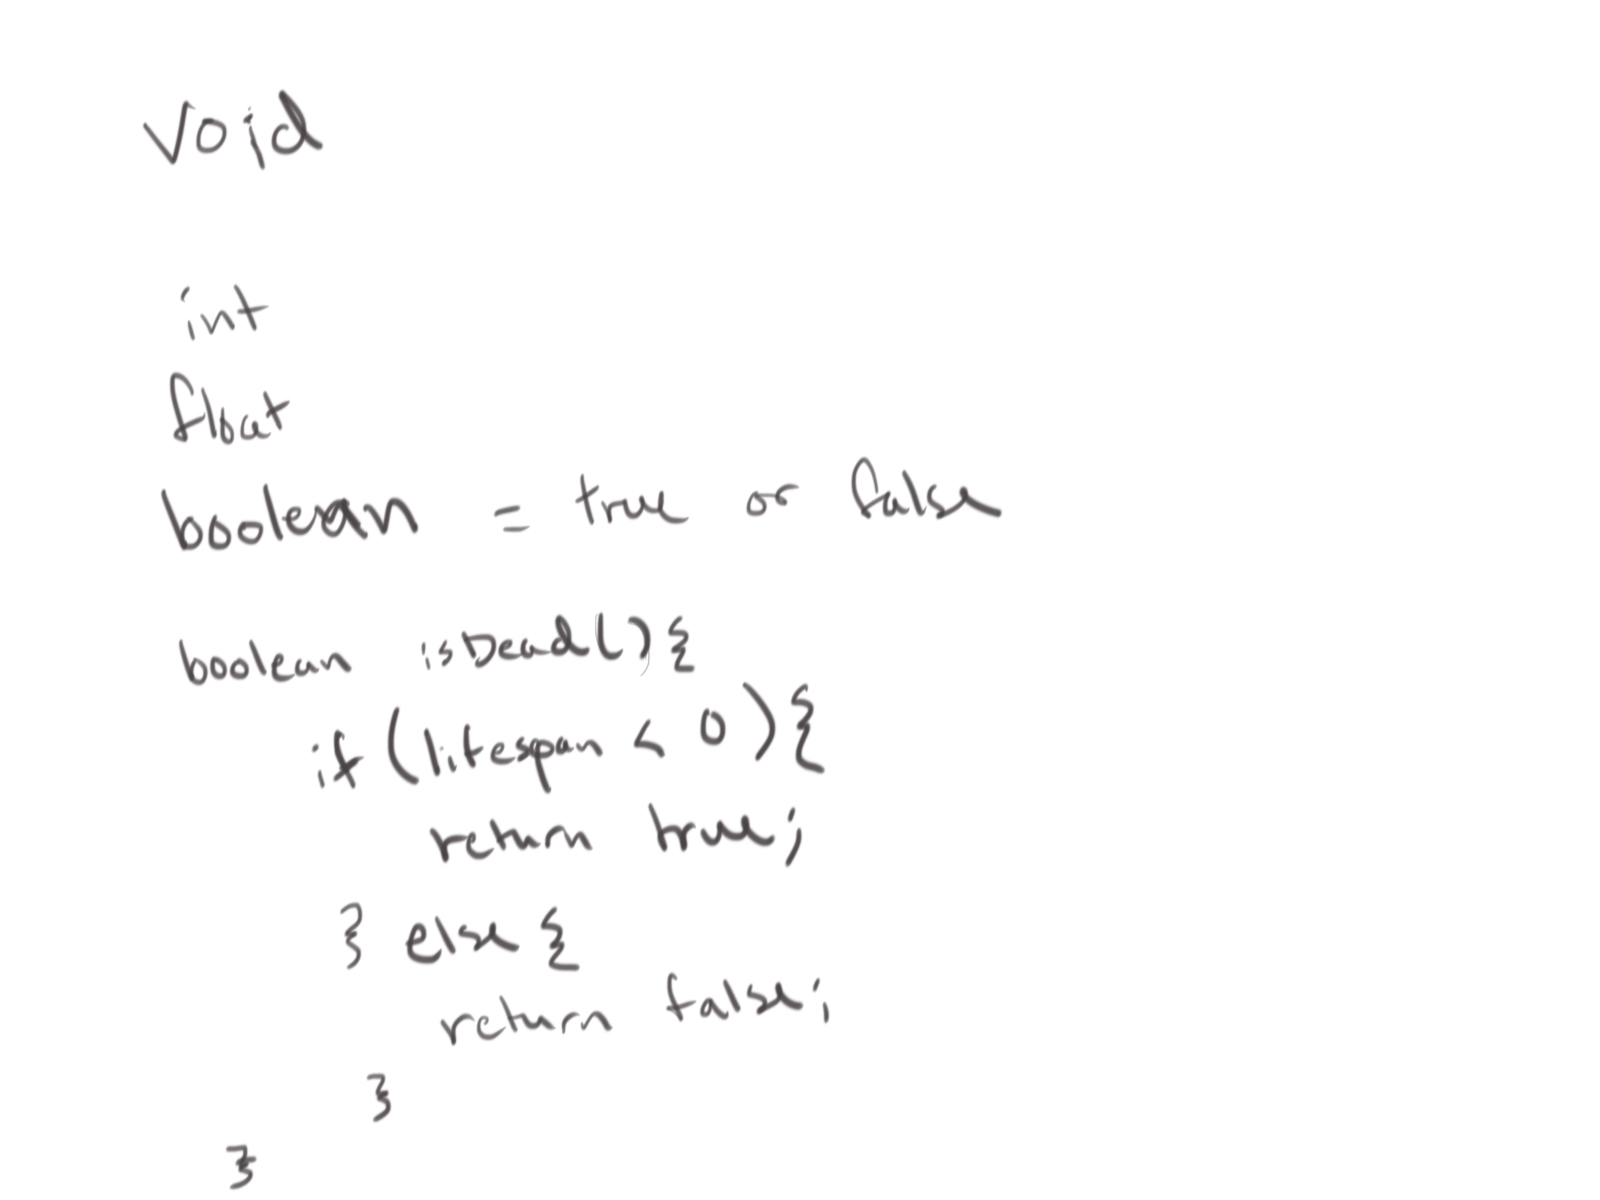 void
int
float
boolean = true or false
boolean isDead(){
if (lifespan < 0){
return true;
} else {
return false;
}
}